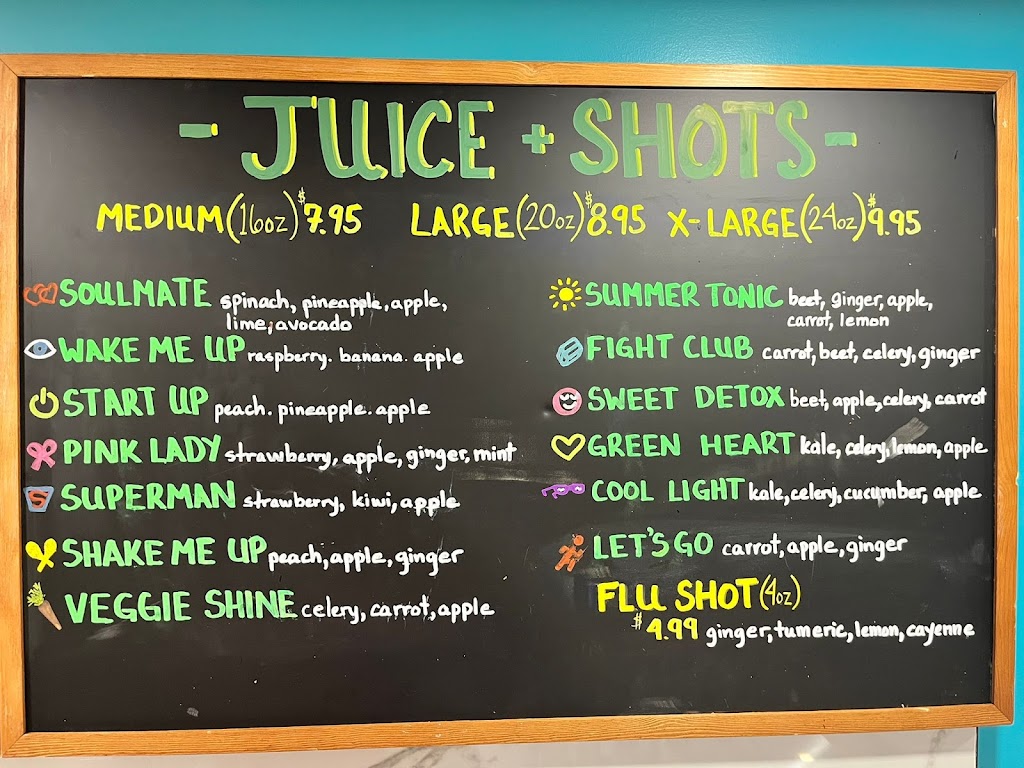 - JUICE + SHOTS -
MEDIUM (16oz) $7.95 LARGE (20oz) $8.95 X-LARGE (24oz) $9.95
SOULMATE spinach, pineapple, apple,
lime, avocado
WAKE ME UP raspberry. banana. apple
START UP peach. pineapple. apple
PINK LADY strawberry, apple, ginger, mint
SUPERMAN strawberry, kiwi, apple
SHAKE ME UP peach, apple, ginger
VEGGIE SHINE celery, carrot, apple
SUMMER TONIC beet, ginger, apple,
carrot, lemon
FIGHT CLUB carrot, beet, celery, ginger
SWEET DETOX beet, apple, celery, carrot
GREEN HEART kale, celery, lemon, apple
COOL LIGHT kale, celery, cucumber, apple
LET'S GO carrot, apple, ginger
FLU SHOT (4oz)
$4.99 ginger, tumeric, lemon, cayenne